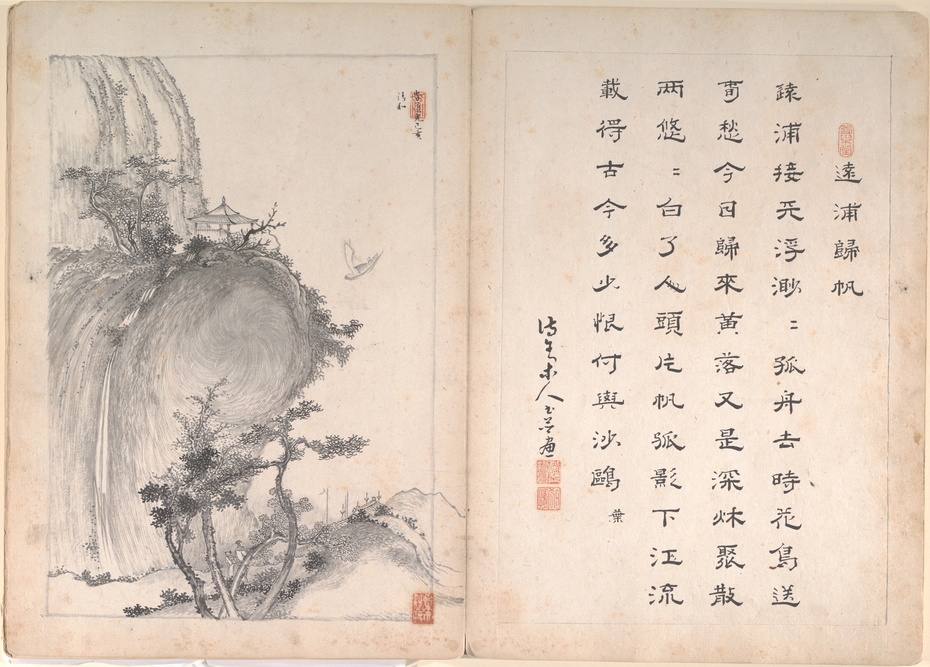 遠浦歸帆
浦接天浮渺〻孤舟去時花鳥送
旾愁今日歸來黃落又是深秌聚散
兩悠〻白了人頭片帆孤影下江流
載得古今多少恨付與沙鷗 葉
人書並畫